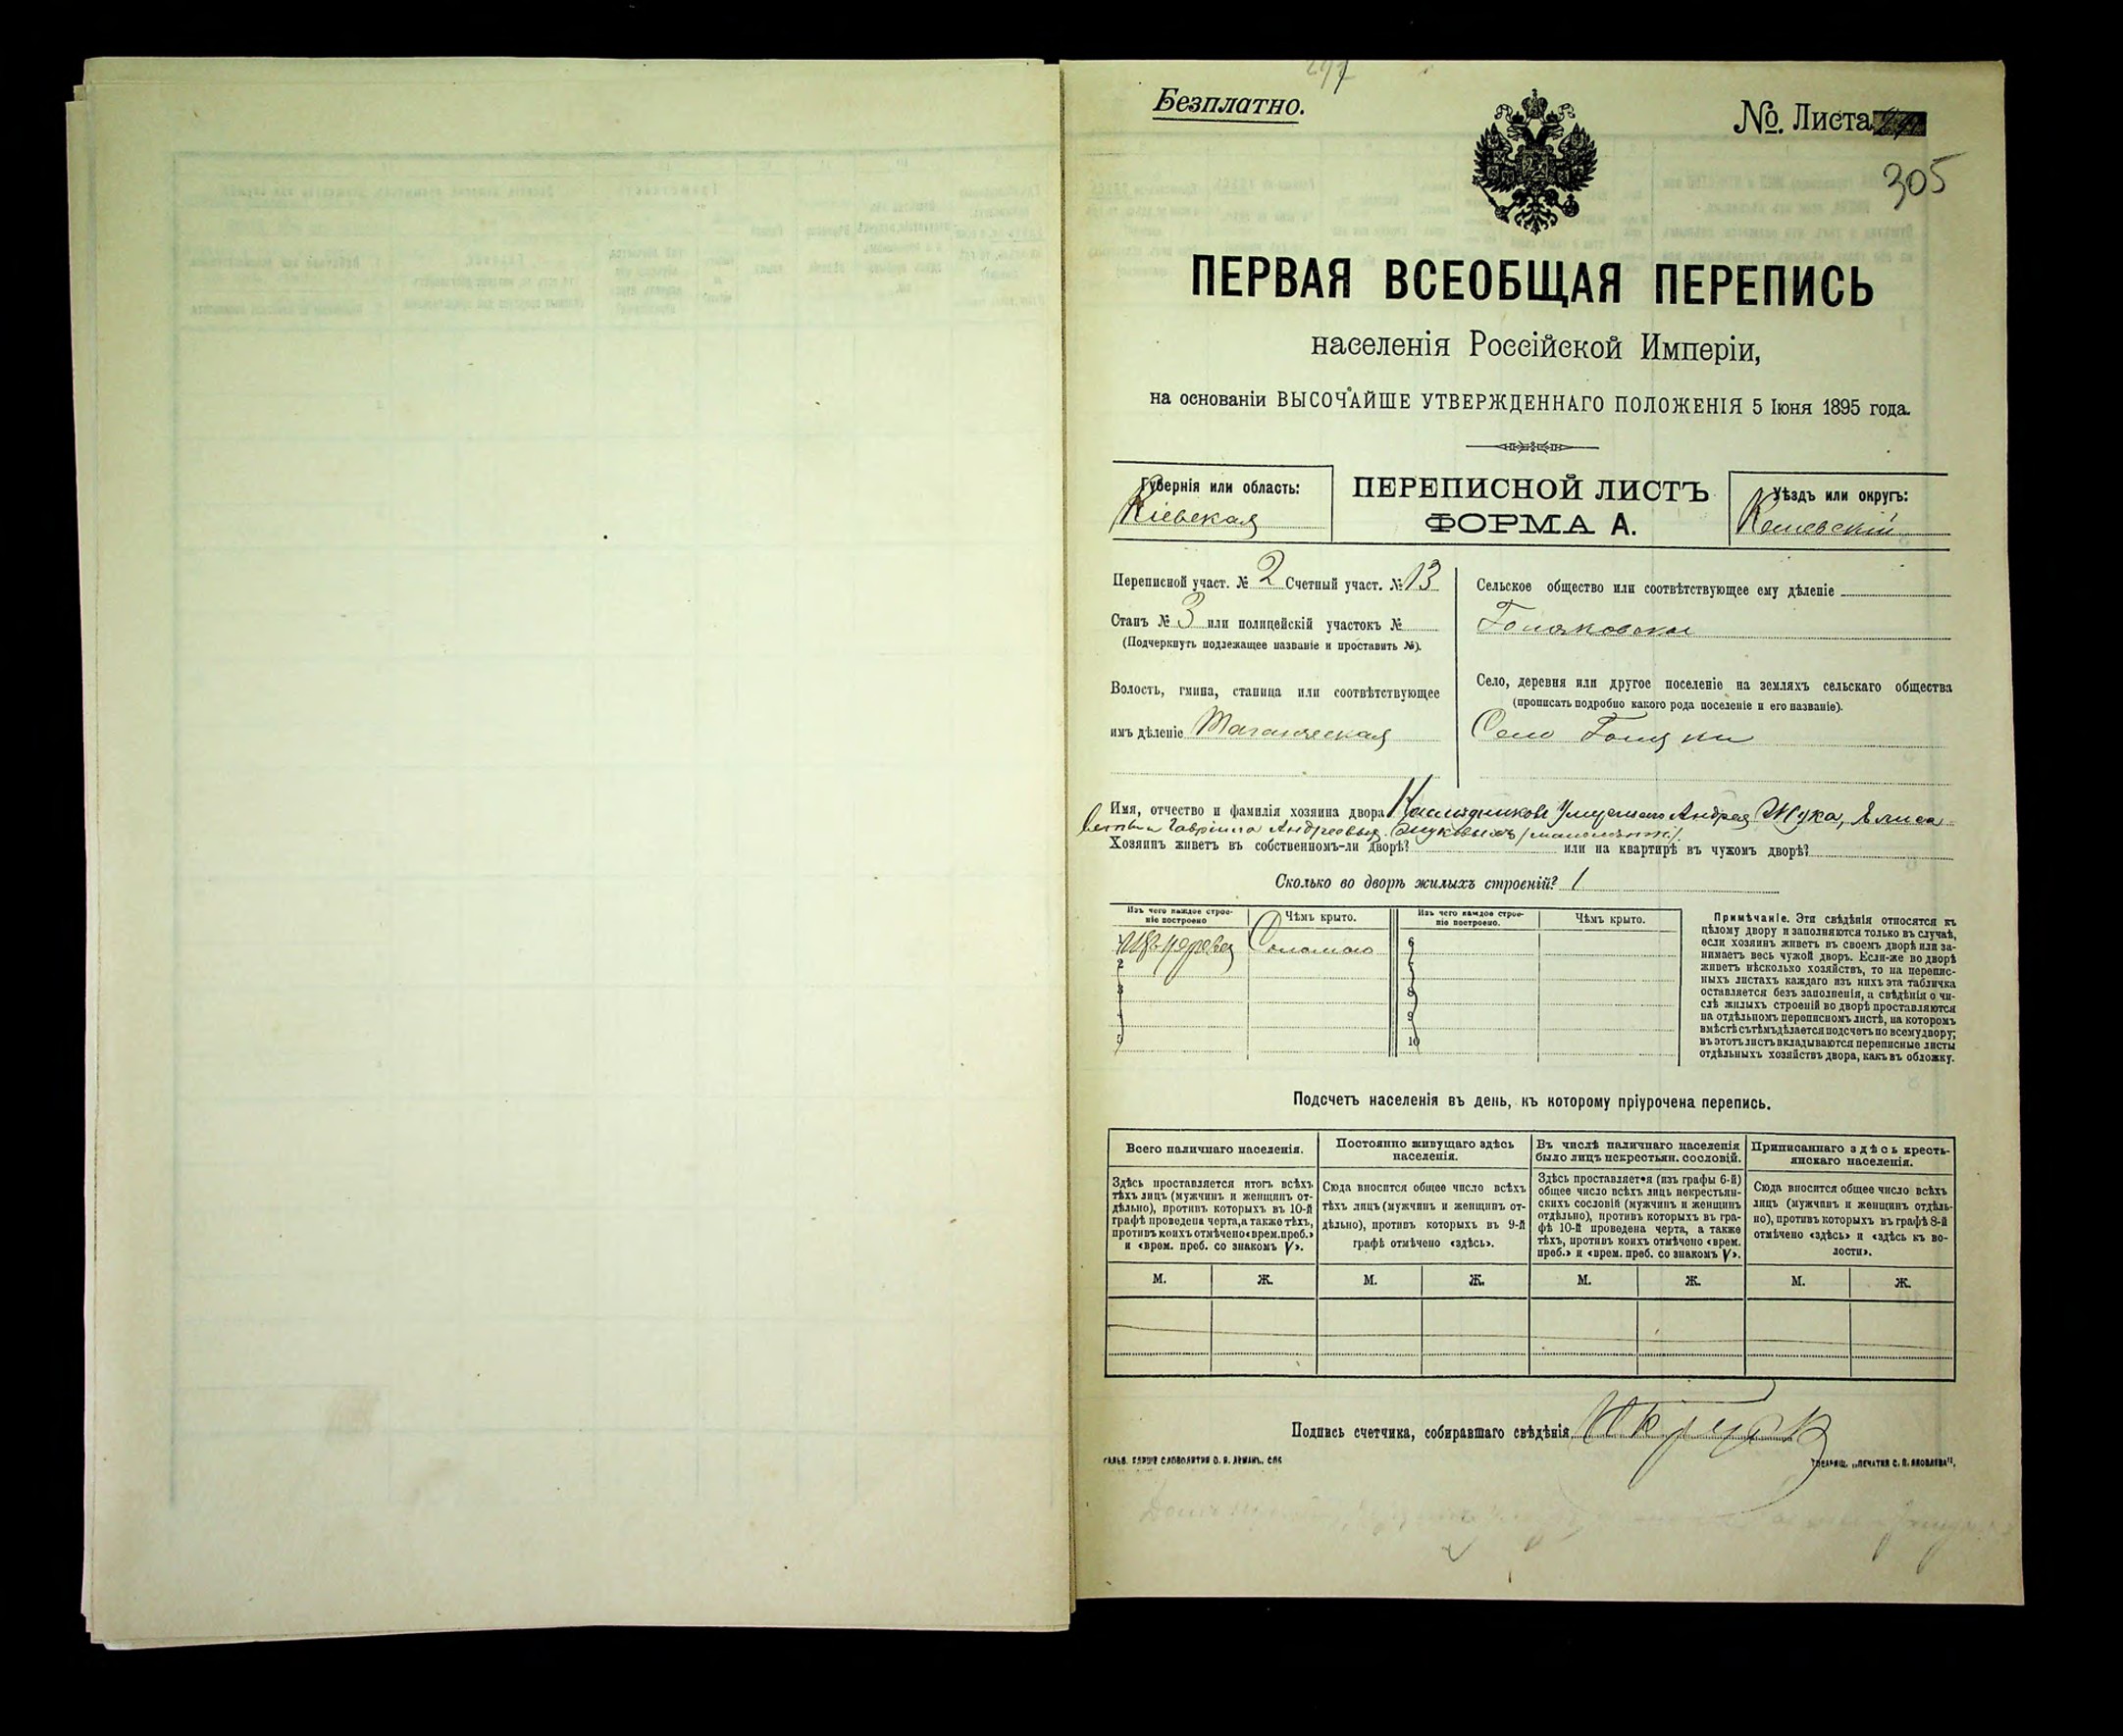 297
Безплатно.
№. Листа
305
ПЕРВАЯ ВСЕОБЩАЯ ПЕРЕПИСЬ
населенія Россійской Имперіи,
на основаніи ВЫСОЧАЙШЕ УТВЕРЖДЕННАГО ПОЛОЖЕНІЯ 5 Іюня 1895 года.
Губернія или область:
Кіевская
ПЕРЕПИСНОЙ ЛИСТЪ
ФОРМА А.
Уѣздъ или округъ:
Каневскій
Переписной участ. № 2 Счетный участ. № 13
Станъ № 3 или полицейскій участокъ №
(Подчеркнуть подлежащее названіе и проставить №).
Волость, гмина, станица или соотвѣтствующее
имъ дѣленіе Таганческая
Сельское общество или соотвѣтствующее ему дѣленіе
Село, деревня или другое поселеніе на земляхъ сельскаго общества
(прописать подробно какого рода поселеніе и его названіе).
Село
Имя, отчество и фамилія хозяина двора Наслѣдниковъ умершаго Андрея Жука, Елиса
веты и Гавріила Андреевыхъ Жуковыхъ (малолѣтн.)
Хозяинъ живетъ въ собственномъ-ли дворѣ? или на квартирѣ въ чужомъ дворѣ?
Сколько во дворѣ жилыхъ строеній? 1
Изъ чего каждое строе-
ніе построено
Чѣмъ крыто.
Изъ чего каждое строе-
ніе построено.
Чѣмъ крыто.
1 Изъ дерева Соломою
2
3
5
6
7
8
9
10
Примѣчаніе. Эти свѣдѣнія относятся къ
цѣлому двору и заполняются только въ случаѣ,
если хозяинъ живетъ въ своемъ дворѣ или за-
нимаетъ весь чужой дворъ. Если-же во дворѣ
живетъ нѣсколько хозяйствъ, то на перепис-
ныхъ листахъ каждаго изъ нихъ эта табличка
оставляется безъ заполненія, а свѣдѣнія о чи-
слѣ жилыхъ строеній во дворѣ проставляются
на отдѣльномъ переписномъ листѣ, на которомъ
вмѣстѣ съ тѣмъ дѣлается подсчетъ по всему двору;
въ этотъ листъ вкладываются переписные листы
отдѣльныхъ хозяйствъ двора, какъ въ обложку.
Подсчетъ населенія въ день, къ которому пріурочена перепись.
Всего наличнаго населенія.
Здѣсь проставляется итогъ всѣхъ
тѣхъ лицъ (мужчинъ и женщинъ от-
дѣльно), противъ которыхъ въ 10-й
графѣ проведена черта, а также тѣхъ,
противъ коихъ отмѣчено «врем. преб.»
и «врем. преб. со знакомъ V».
Постоянно живущаго здѣсь
населенія.
Сюда вносится общее число всѣхъ
тѣхъ лицъ (мужчинъ и женщинъ от-
дѣльно), противъ которыхъ въ 9-й
графѣ отмѣчено «здѣсь».
Въ числѣ наличнаго населенія
было лицъ некрестьян. сословій.
Здѣсь проставляется (изъ графы 6-й)
общее число всѣхъ лицъ некрестьян-
скихъ сословій (мужчинъ и женщинъ
отдѣльно), противъ которыхъ въ гра-
фѣ 10-й проведена черта, а также
тѣхъ, противъ коихъ отмѣчено «врем.
преб.» и «врем. преб. со знакомъ V».
Приписаннаго здѣсь кресть-
янскаго населенія.
Сюда вносится общее число всѣхъ
лицъ (мужчинъ и женщинъ отдѣль-
но), противъ которыхъ въ графѣ 8-й
отмѣчено «здѣсь» и «здѣсь къ во-
лости».
М. Ж. М. Ж. М. Ж. М. Ж.
Подпись счетчика, собиравшаго свѣдѣнія
ГАЛЬВ. КЛИШЕ СЛОВОЛИТНИ О. И. ЛЕМАНЪ. СПБ
ТОВАРИЩ. „ПЕЧАТНЯ С. П. ЯКОВЛЕВА".